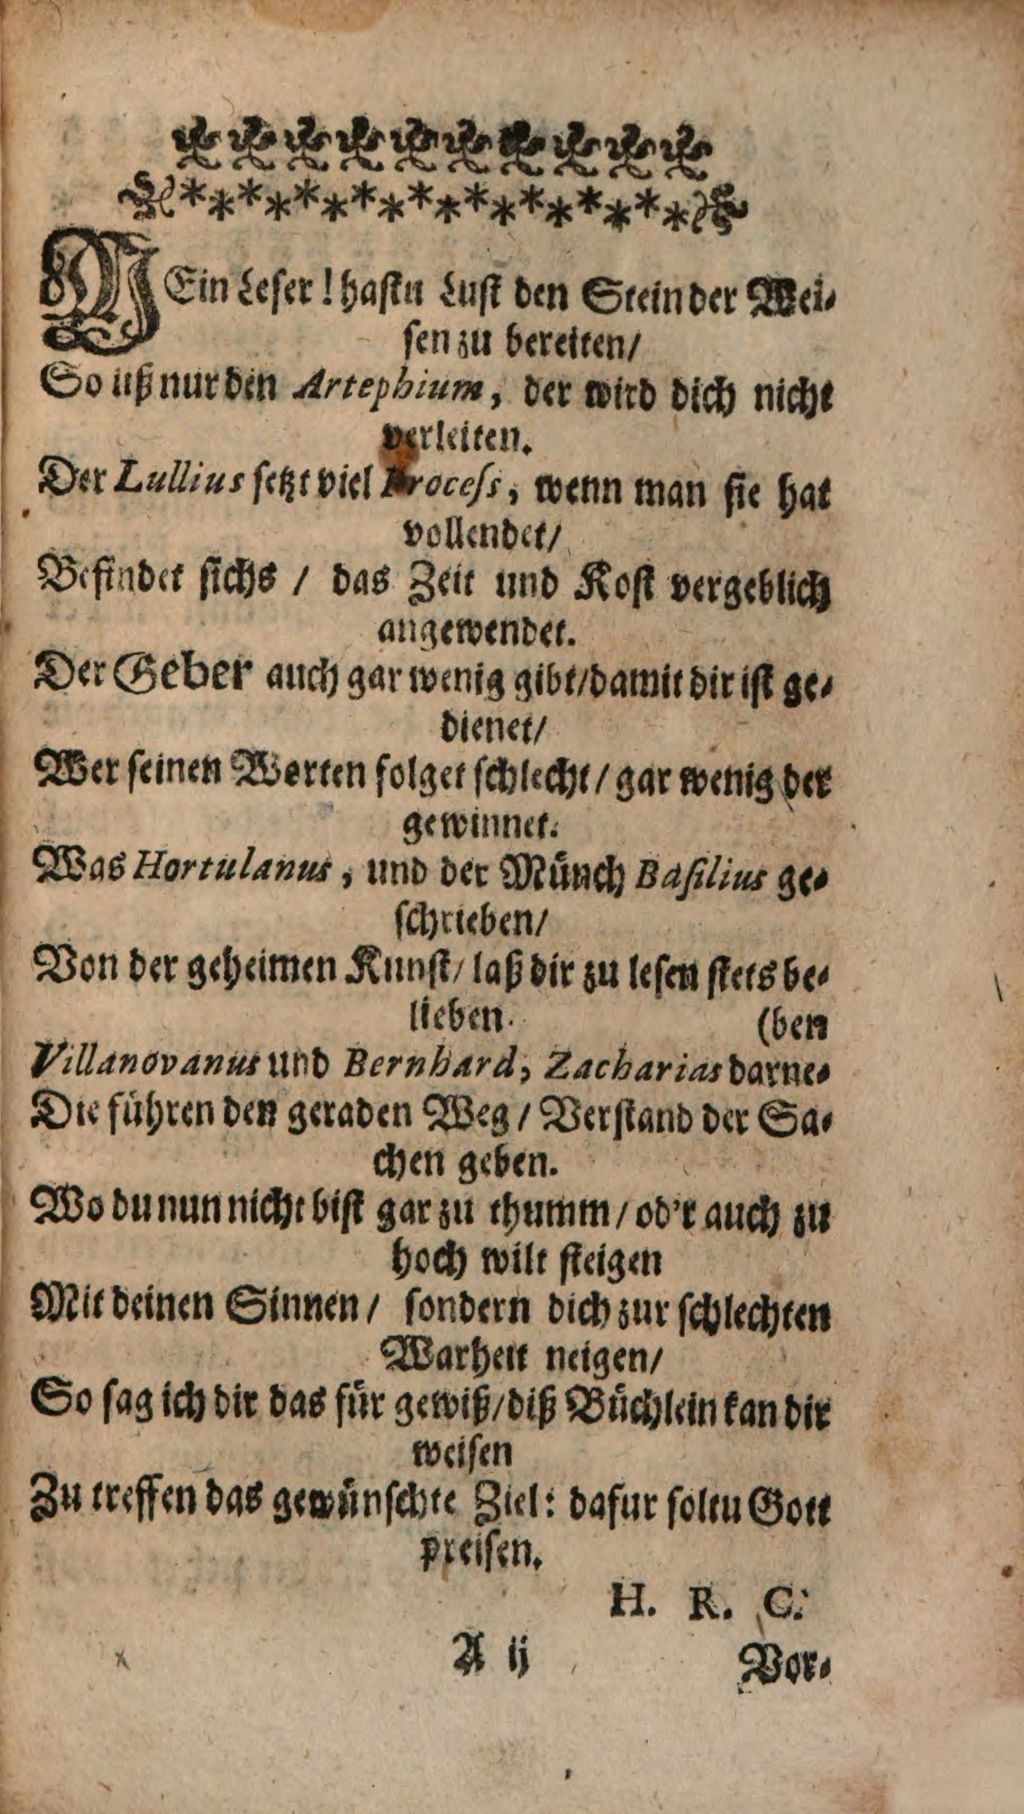 MEin Leser! hastu Lust den Stein der Wei-
sen zu bereiten/
So liß nur den Artephium, der wird dich nicht
verleiten.
Der Lullius setzt viel Process, wenn man sie hat
vollendet/
Befindet sichs / das Zeit und Kost vergeblich
angewendet.
Der Geber auch gar wenig gibt/damit dir ist ge-
dienet/
Wer seinen Worten folget schlecht/ gar wenig der
gewinnet.
Was Hortulanus, und der Münch Basilius ge-
schrieben/
Von der geheimen Kunst/ laß dir zu lesen stets be-
lieben.
(ben
Villanovanus und Bernhard, Zacharias darne-
Die führen den geraden Weg / Verstand der Sa-
chen geben.
Wo du nun nicht bist gar zu thumm/ od'r auch zu
hoch wilt steigen
Mit deinen Sinnen/ sondern dich zur schlechten
Warheit neigen/
So sag ich dir das für gewiß/diß Büchlein kan dir
weisen
Zu treffen das gewünschte Ziel: dafur soltu Gott
preisen.
H. R. C.
A ij
Vor-